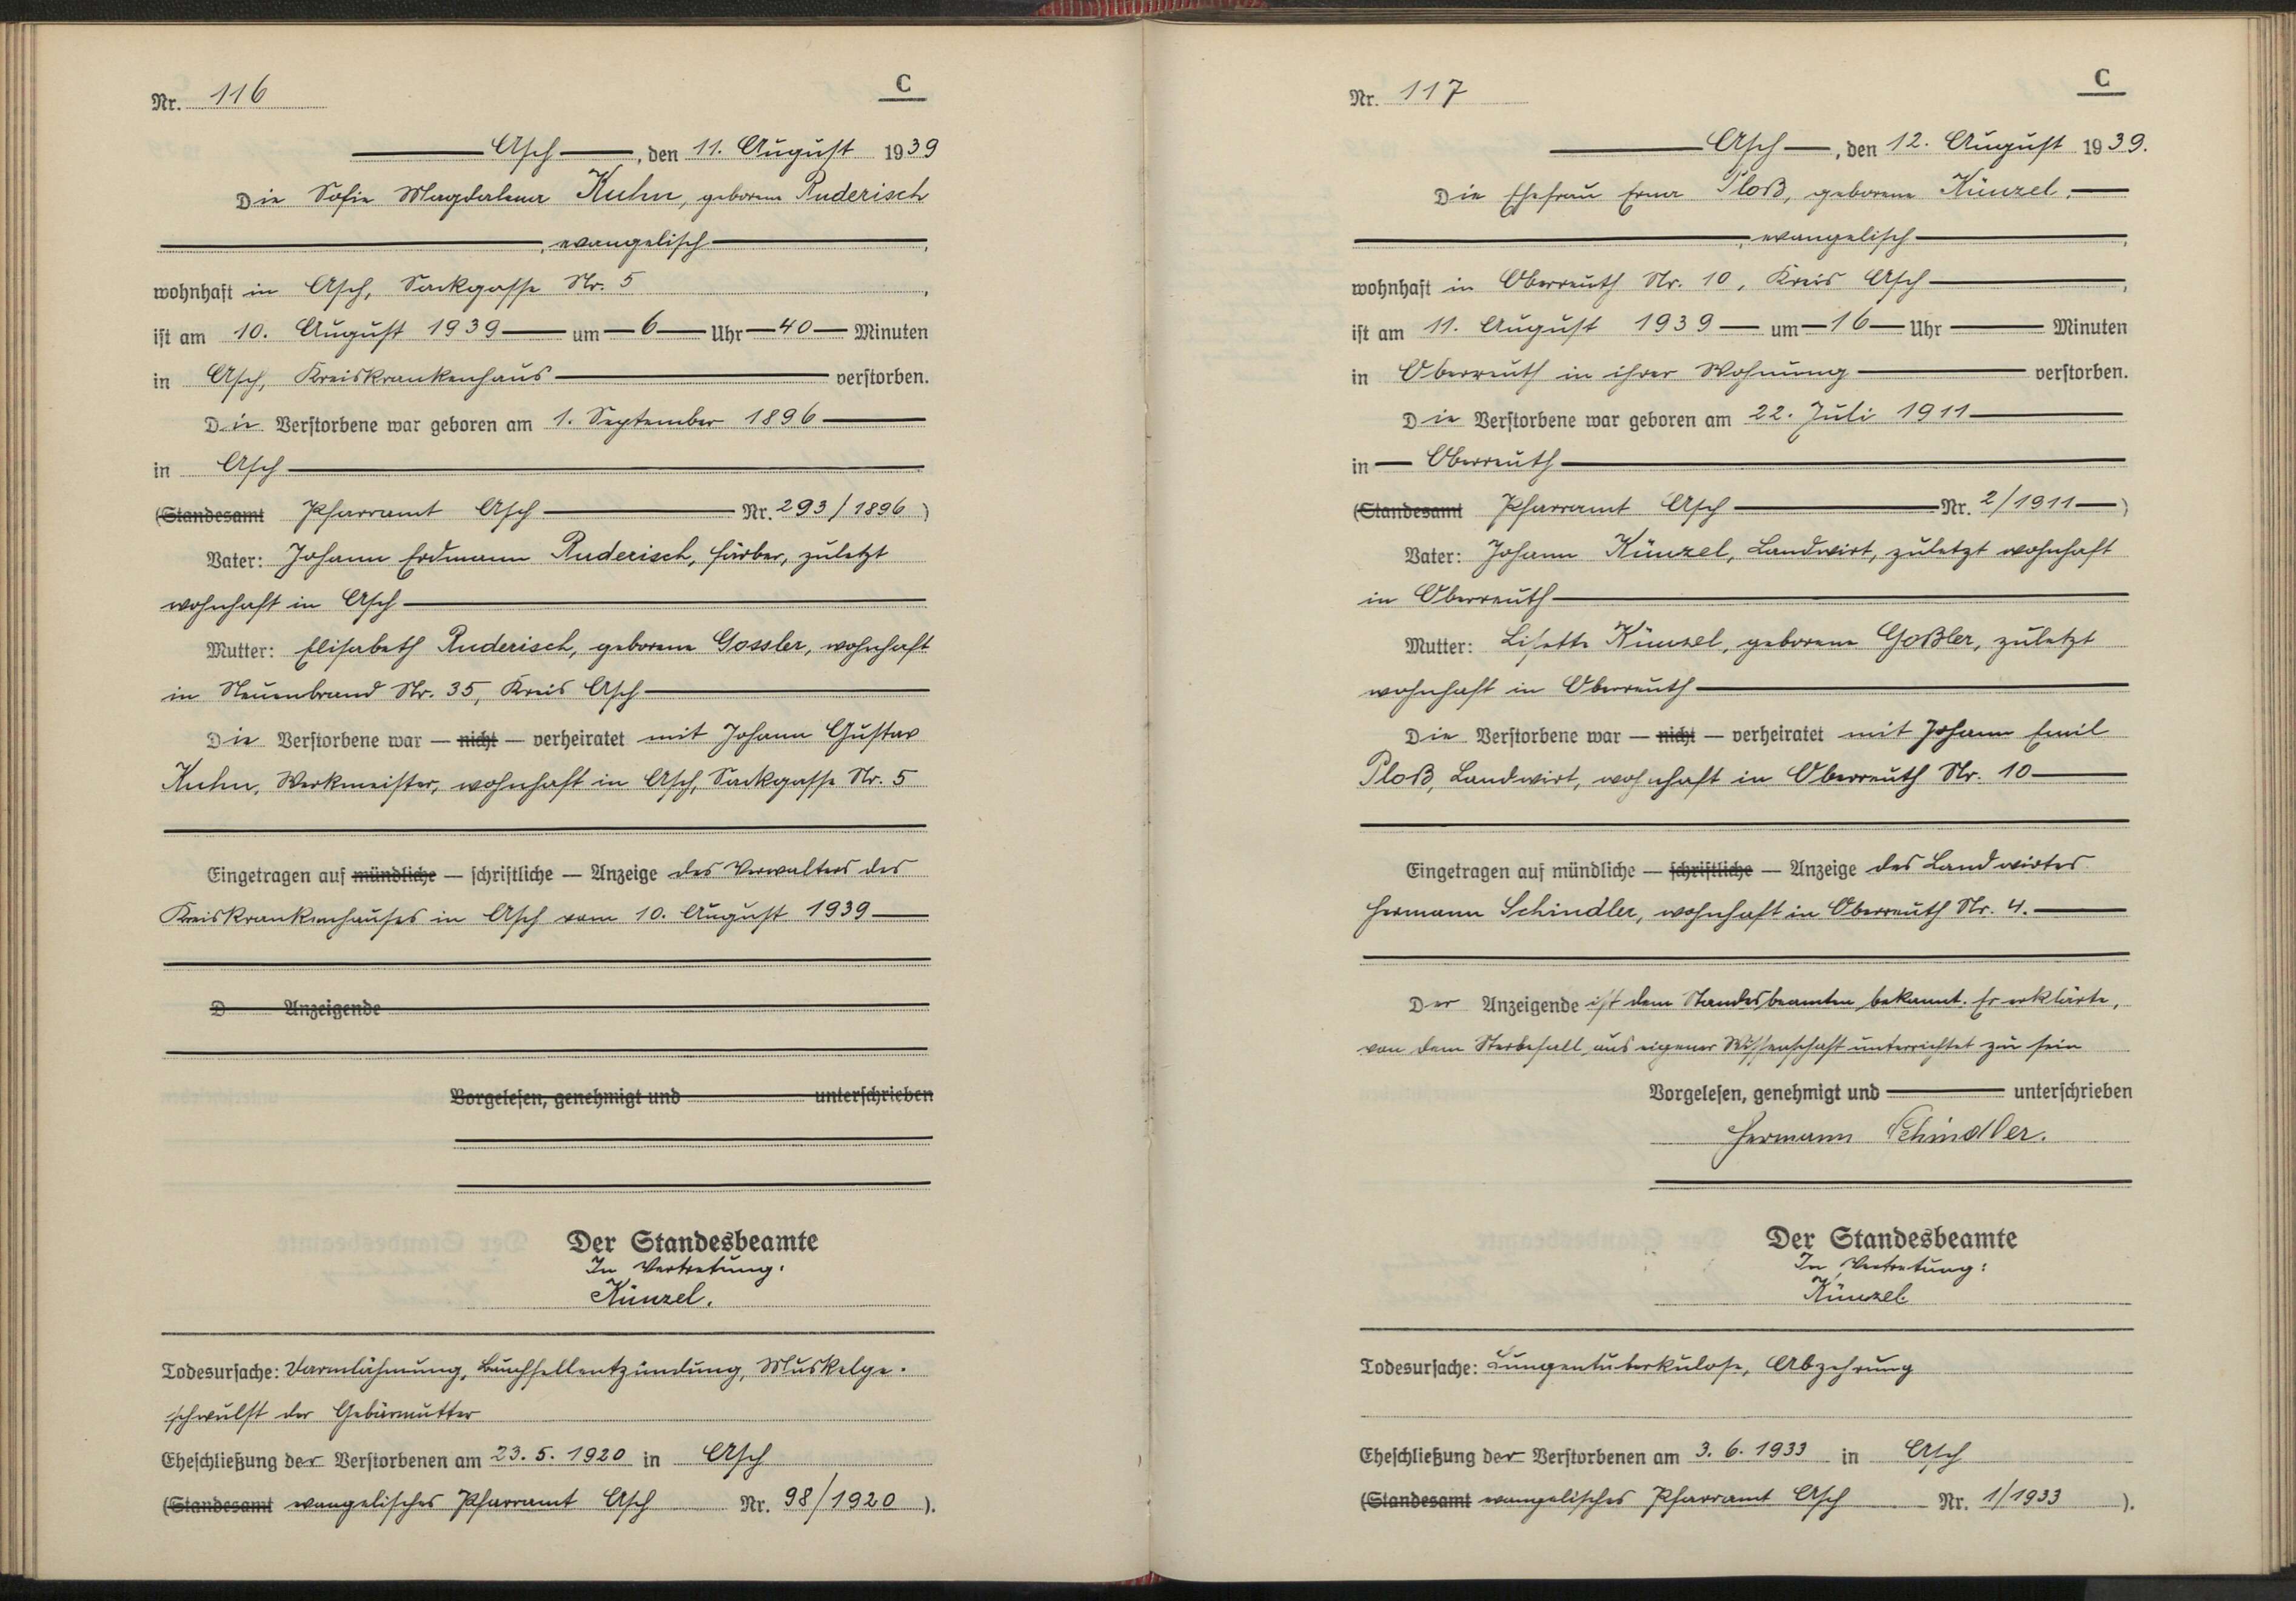 Nr. 116
C
Asch, den 11. August 1939
Die Sofie Magdalena Kuhn, geborene Ruderisch
, evangelisch,
wohnhaft in Asch, Sackgasse Nr. 5,
ist am 10. August 1939 um 6 Uhr 40 Minuten
in Asch, Kreiskrankenhaus verstorben.
Die Verstorbene war geboren am 1. September 1896
in Asch
(Standesamt Pfarramt Asch Nr. 293/1896)
Vater: Johann Erdmann Ruderisch, Färber, zuletzt
wohnhaft in Asch
Mutter: Elisabeth Ruderisch, geborene Gossler, wohnhaft
in Neuenbrand Nr. 35, Kreis Asch
Die Verstorbene war — nicht — verheiratet mit Johann Gustav
Kuhn, Werkmeister, wohnhaft in Asch, Sackgasse Nr. 5
Eingetragen auf mündliche — schriftliche — Anzeige des Verwalters des
Kreiskrankenhauses in Asch vom 10. August 1939
D Anzeigende
Vorgelesen, genehmigt und unterschrieben
Der Standesbeamte
In Vertretung:
Künzel.
Todesursache: Darmlähmung, Bauchfellentzündung, Muskelge-
schwulst der Gebärmutter
Eheschließung der Verstorbenen am 23. 5. 1920 in Asch
(Standesamt evangelisches Pfarramt Asch Nr. 98/1920).
Nr. 117
C
Asch, den 12. August 1939.
Die Ehefrau Erna Ploß, geborene Künzel,
, evangelisch,
wohnhaft in Oberreuth Nr. 10, Kreis Asch,
ist am 11. August 1939 um 16 Uhr Minuten
in Oberreuth in ihrer Wohnung verstorben.
Die Verstorbene war geboren am 22. Juli 1911
in Oberreuth
(Standesamt Pfarramt Asch Nr. 2/1911)
Vater: Johann Künzel, Landwirt, zuletzt wohnhaft
in Oberreuth
Mutter: Lisette Künzel, geborene Goßler, zuletzt
wohnhaft in Oberreuth
Die Verstorbene war — nicht — verheiratet mit Johann Emil
Ploß, Landwirt, wohnhaft in Oberreuth Nr. 10
Eingetragen auf mündliche — schriftliche — Anzeige des Landwirtes
Hermann Schindler, wohnhaft in Oberreuth Nr. 4.
Der Anzeigende ist dem Standesbeamten bekannt. Er erklärte,
von dem Sterbefall aus eigener Wissenschaft unterrichtet zu sein
Vorgelesen, genehmigt und unterschrieben
Hermann Schindler.
Der Standesbeamte
In Vertretung:
Künzel.
Todesursache: Lungentuberkulose, Abzehrung
Eheschließung der Verstorbenen am 3. 6. 1933 in Asch
(Standesamt evangelisches Pfarramt Asch Nr. 1/1933).